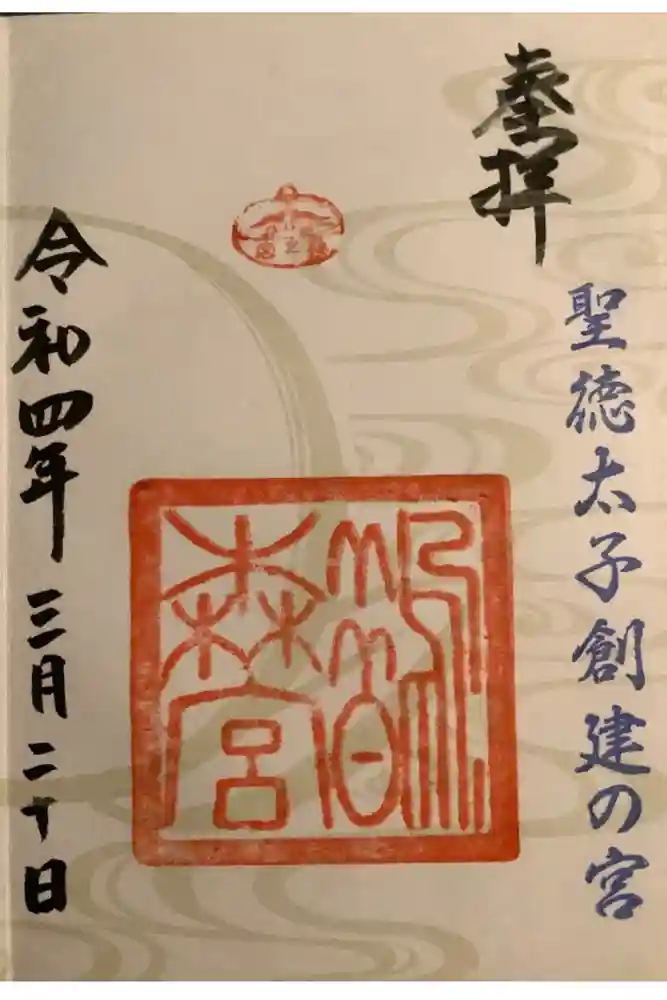 奉拝
聖徳太子創建の宮
鵲森宮
令和四年 三月二十日